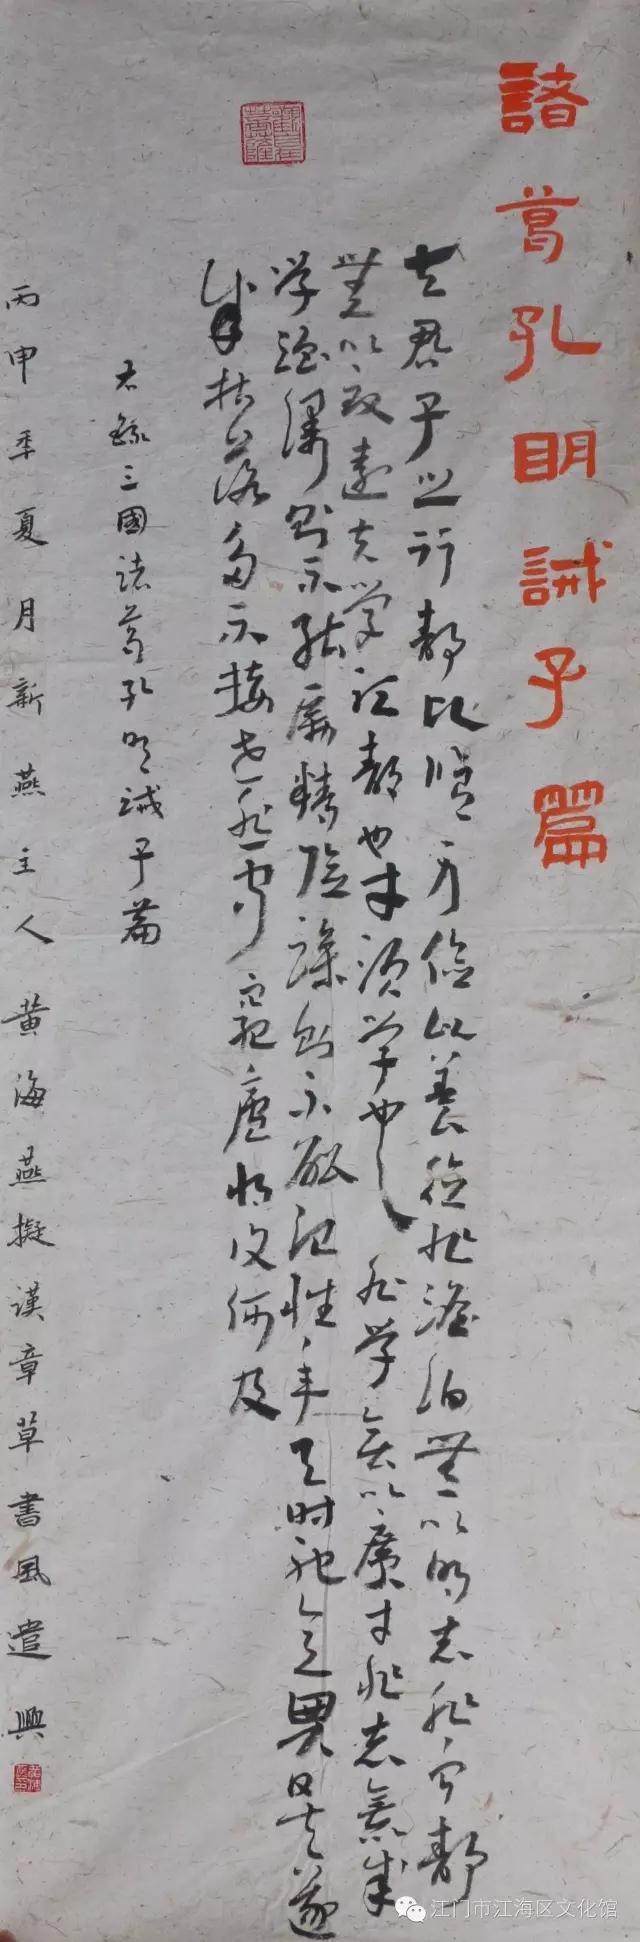 諸葛孔明誡子篇
夫君子之行靜以脩身儉以養德非澹泊無以明志非寧靜
無以致遠夫学須靜也才須学也非学無以廣才非志無成
学淫慢則不能勵精險躁則不能治性年与时馳意与日去遂
成枯落多不接世悲守窮廬將復何及
右錄三國諸葛孔明誡子篇
丙申季夏月新燕主人黄海燕擬漢章草書風遣興
江门市江海区文化馆